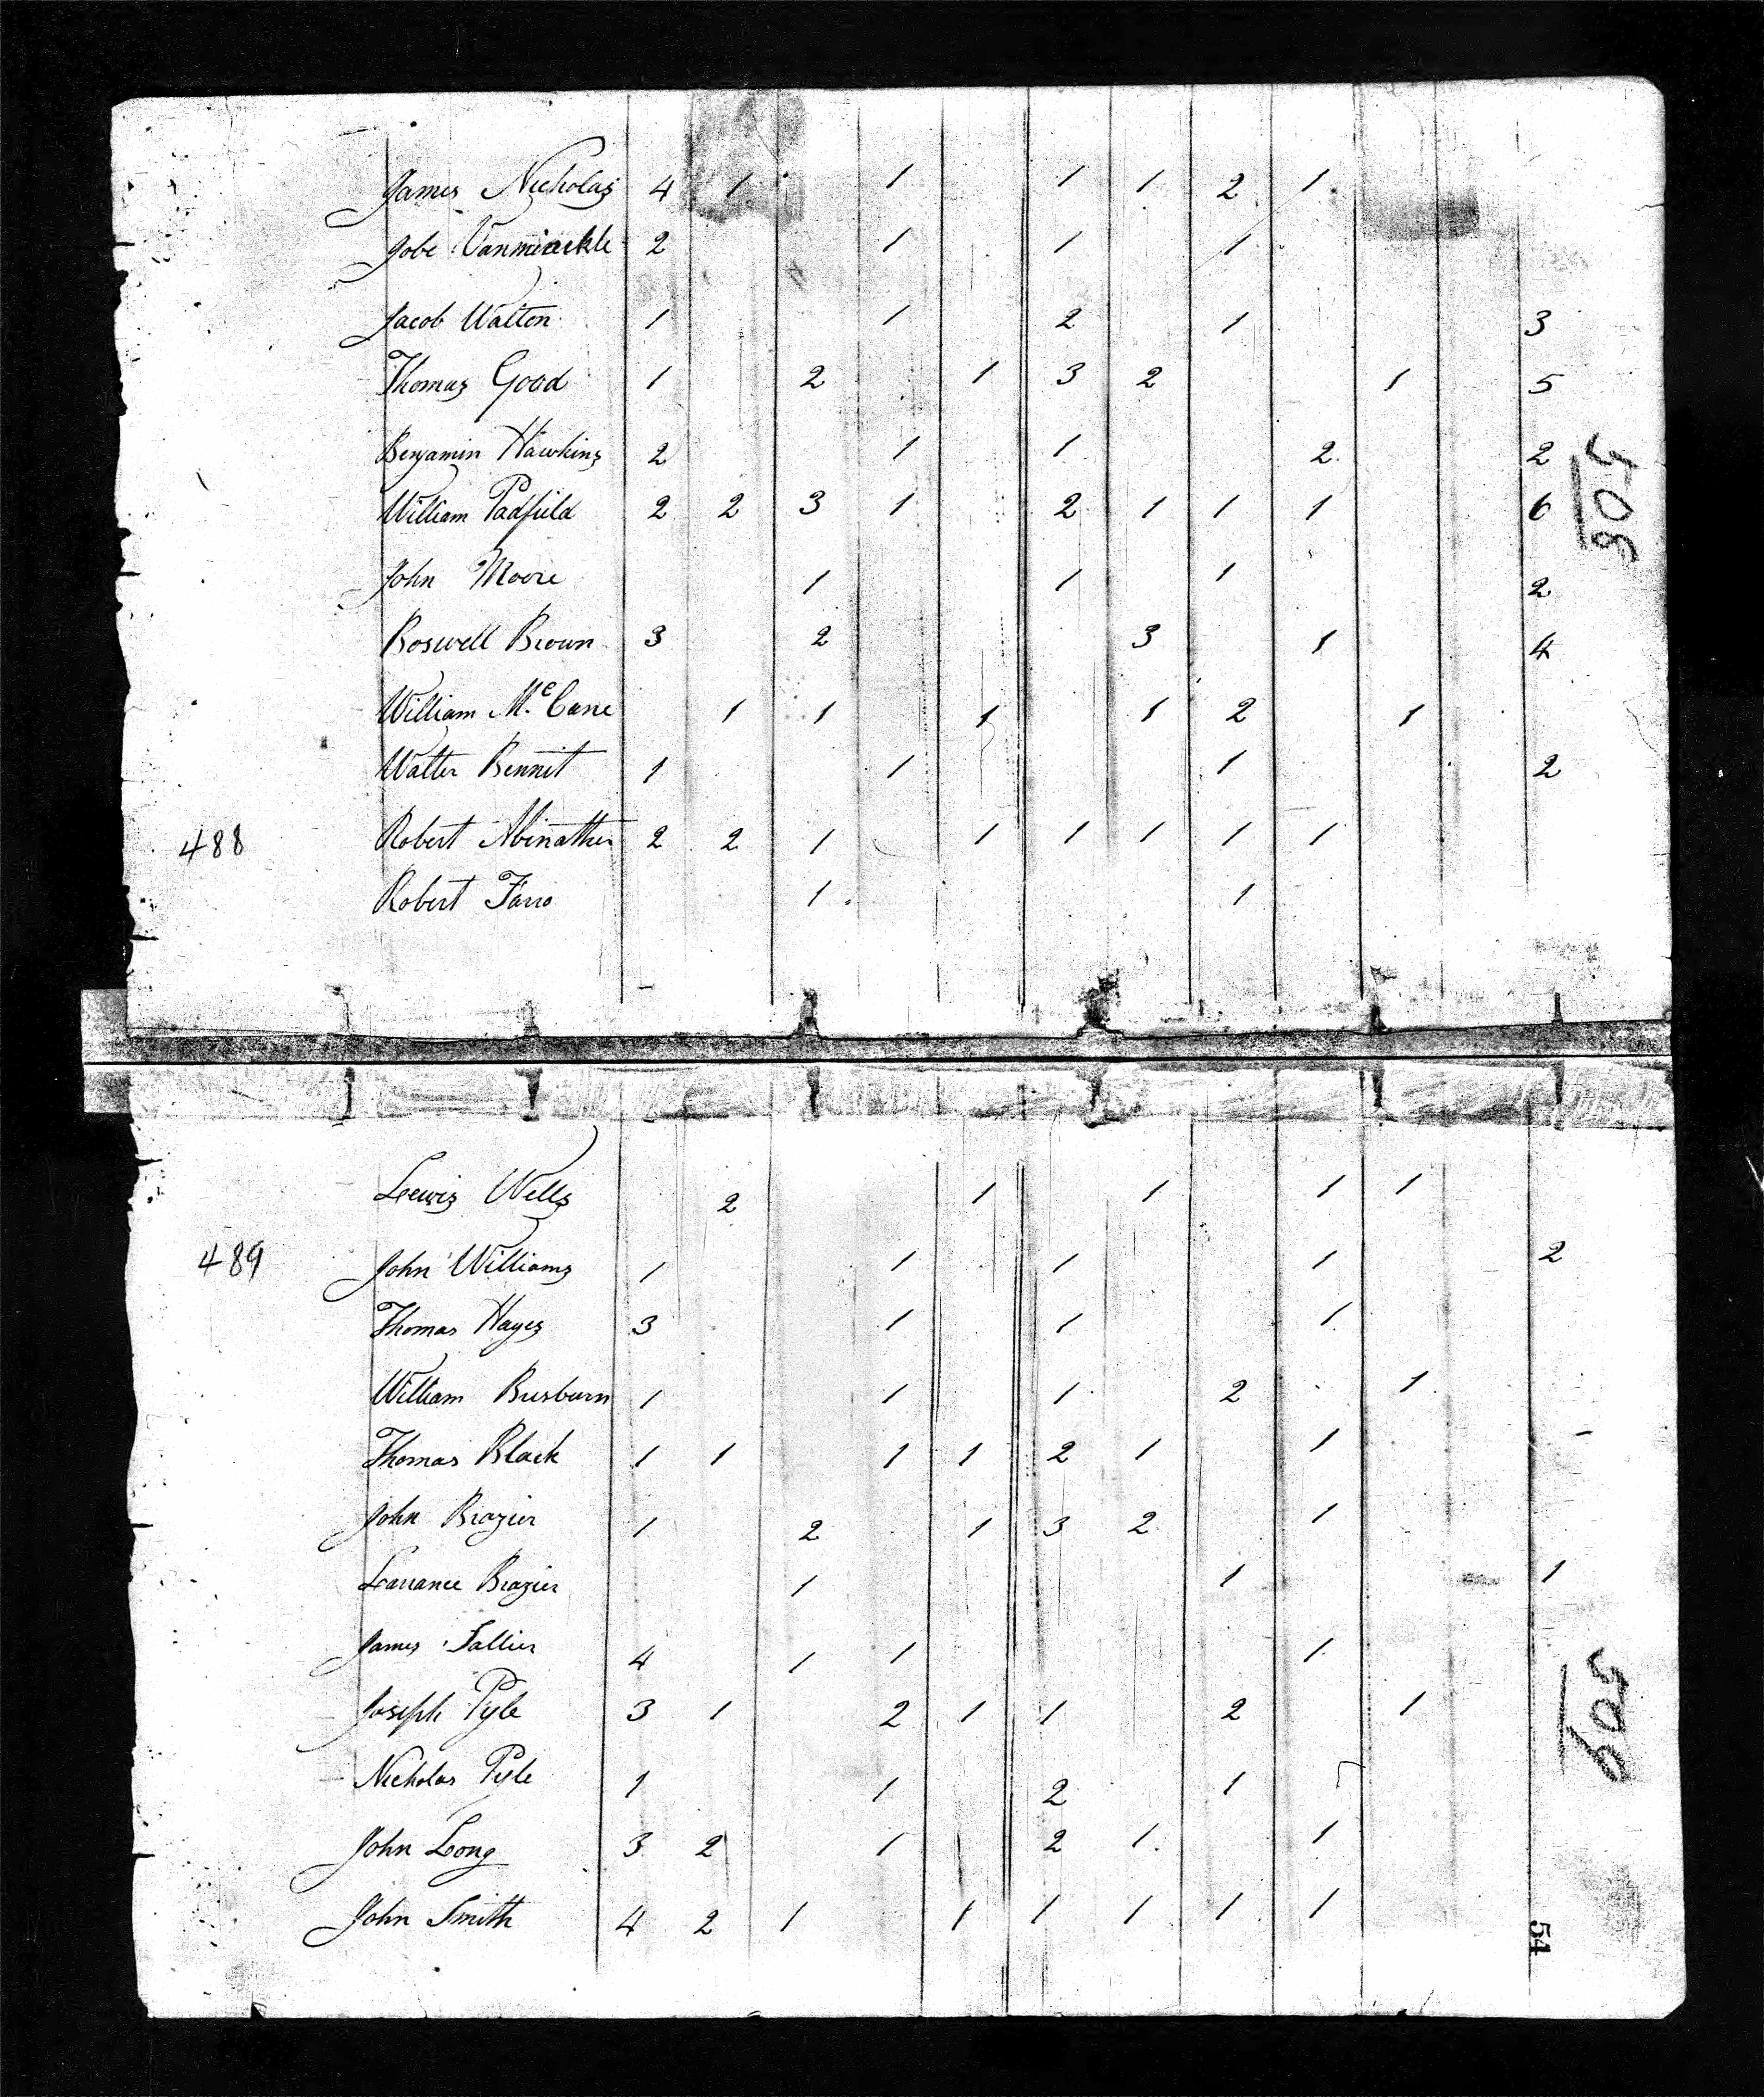 James Nicholas 4 1 1 1 1 2 1
Jobe Vanmiackle 2 1 1 1
Jacob Walton 1 1 2 1 3
Thomas Good 1 2 1 3 2 1 5
Benjamin Hawkins 2 1 1 2 2
508
William Padfield 2 2 3 1 2 1 1 1 6
John Moore 1 1 1 2
Boswell Brown 3 2 3 1 4
William Mc Cane 1 1 1 1 2 1
Walter Bennit 1 1 1 2
488 Robert Abinather 2 2 1 1 1 1 1 1
Robert Farro 1 1
Lewis Wells 2 1 1 1 1
489 John Williams 1 1 1 1 2
Thomas Hayes 3 1 1 1
William Busburn 1 1 1 2 1
Thomas Black 1 1 1 1 2 1 1
John Brazier 1 2 1 3 2 1
Larrance Brazier 1 1 1
James 4 1 1 1
Joseph Pyle 3 1 2 1 1 2 1
509
Nicholas Pyle 1 1 2 1
John Long 3 2 1 2 1 1
John Smith 4 2 1 1 1 1 1 1
54